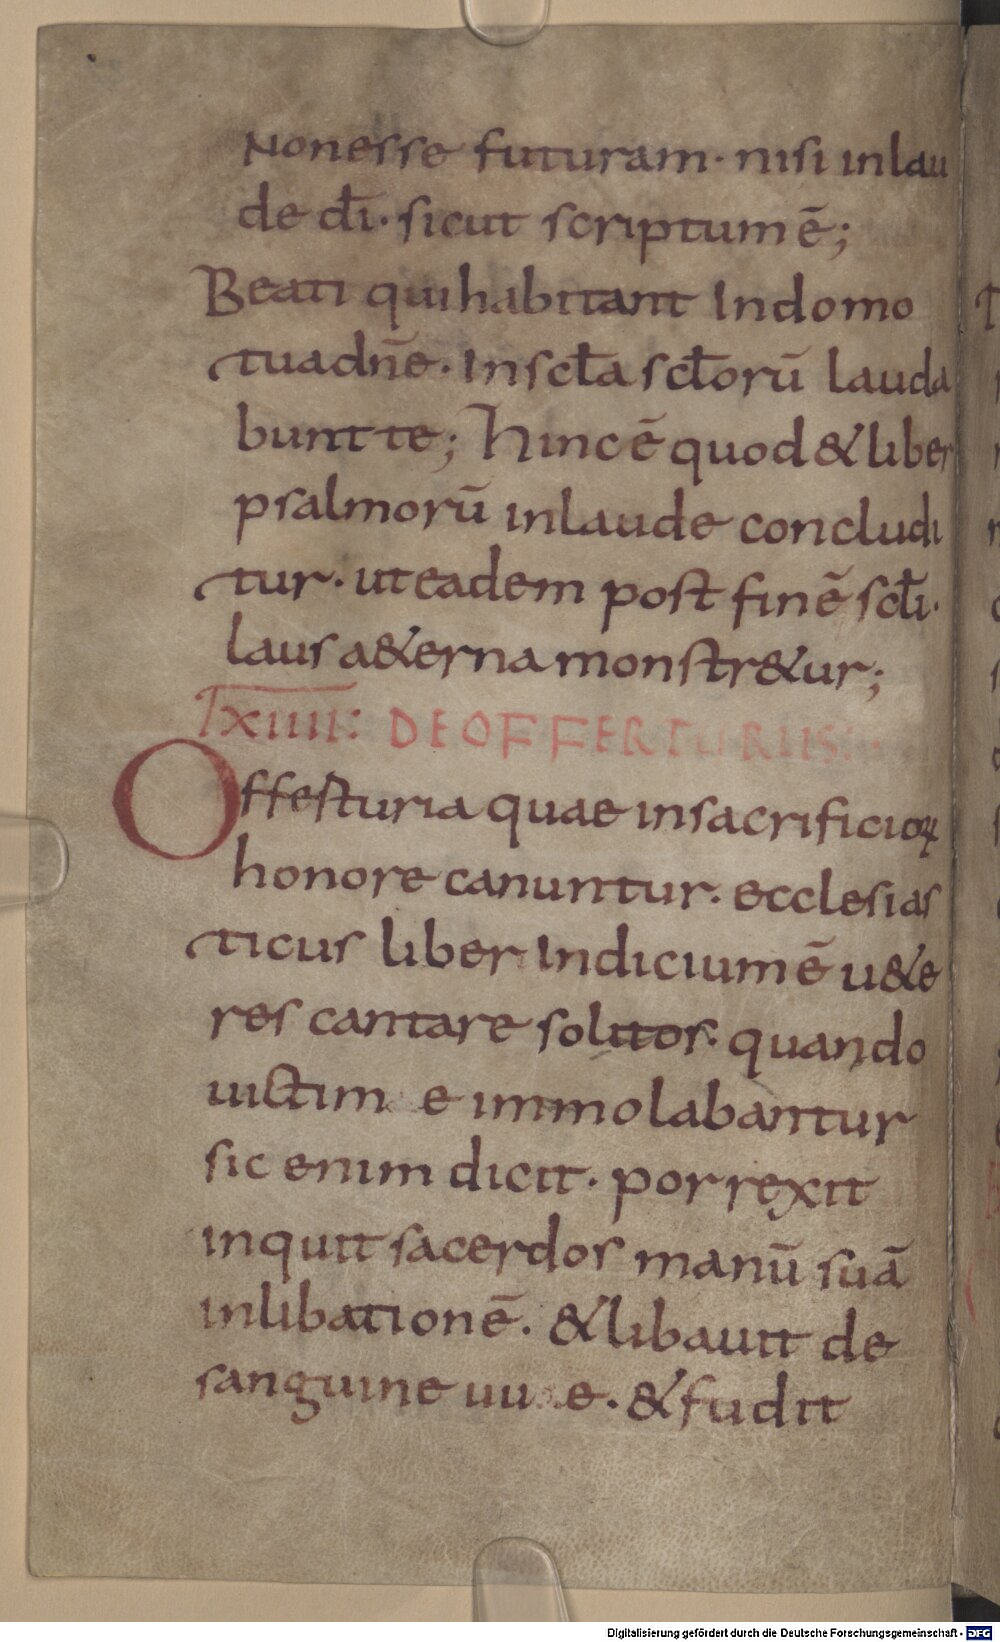 Nonesse futuram· nisi inlau
de dī· sicut scriptum ē;
Beati qui habitant Indomo
tua dn̄e· In scl̄a scl̄orū lauda
bunt te; hinc ē quod & liber
psalmorū inlaude concludi
tur· ut eadem post finē scl̄i·
laus a&erna monstr&ur;
XIIII: DE OFFERTURIIS:
Offesturia quae insacrificioꝝ
honore canuntur· ecclesias
ticus liber Indicium ē u&e
res cantare solitos· quando
uictim e immolabantur
sic enim dicit· porrexit
inquit sacerdos manū suā
inlibationē· & libauit de
sanguine uu e· & fudit
Digitalisierung gefördert durch die Deutsche Forschungsgemeinschaft - DFG